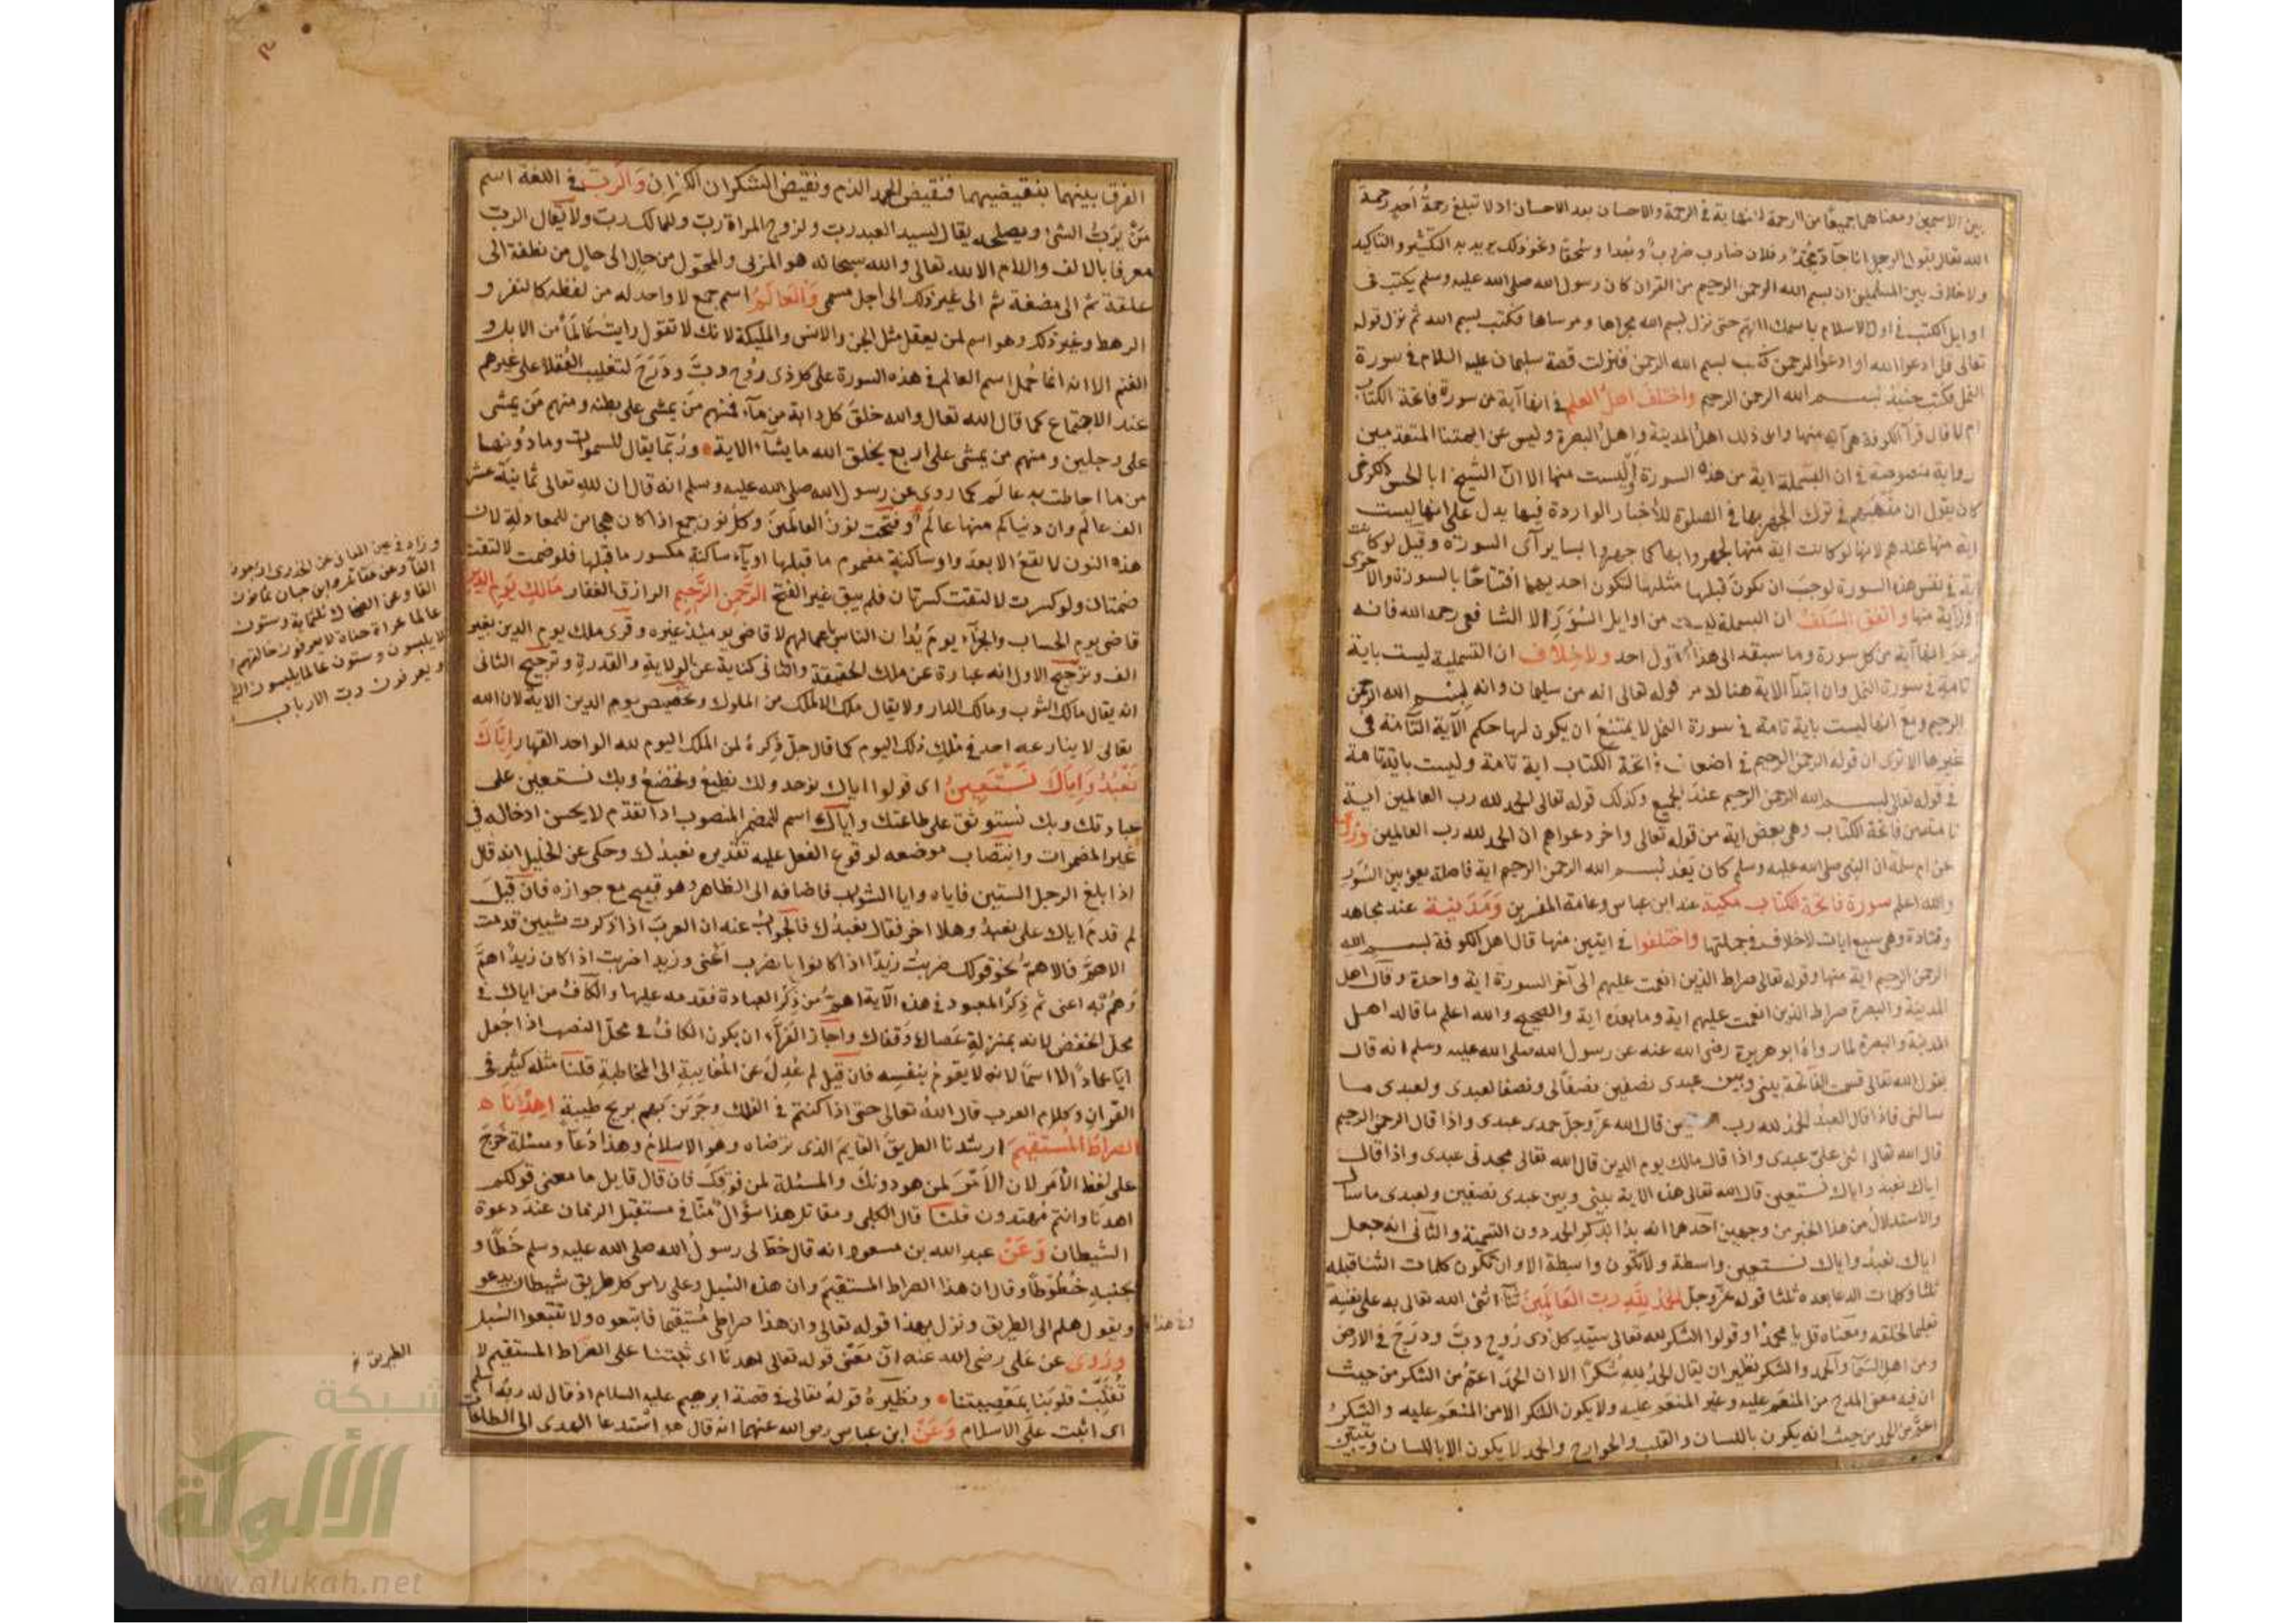 بين الاسمين ومعناهما جميعًا من الرحمة لانهاية في الرحمة والاحسان بعد الاحسان اذ لا تبلغ رحمةُ أحدٍ رحمة
الله تعالى يقول الرجل اتانا جآدٌّ مُجِدٌّ وفلان ضارب ضروب وبُعدا وسُحقا ونحو ذلك يريد به التكثير والتاكيد
ولا خلاف بين المسلمين ان بسم الله الرحمن الرحيم من القران كان رسول الله صلى الله عليه وسلم يكتب في
اوايل الكتب في اول الاسلام باسمك اللهم حتى نزل بسم الله مجراها ومرساها فكتب بسم الله ثم نزل قوله
تعالى قل ادعوا الله او ادعوا الرحمن فكتب بسم الله الرحمن فنزلت قصة سليمان عليه السلام في سورة
النمل فكتب حينئذ بسم الله الرحمن الرحيم واختلف اهلُ العلم في انها آية من سورة فاتحة الكتاب
ام لا قال قرآ الكوفة هى آية منها وابى ذلك اهل المدينة واهل البصرة وليس عن ايمتنا المتقدمين
رواية منصوصة في ان البسملة اية من هذه السورة او ليست منها الا انّ الشيخ ابا الحسن الكرخى
كان يقول ان مذهبهم في ترك الجهر بها في الصلوة للأخبار الواردة فيها يدل على انها ليست
اية منها عندهم لانها لو كانت اية منها لجهروا بها كما جهروا بساير آى السورة وقيل لو كانت
اية في نفس هذه السورة لوجب ان يكون قبلها مثلها لتكون احديهما افتتاحًا بالسورة والاخرى
اول آية منها واتفق السلف ان البسملة ليست من اوايل السُوَرِ الا الشافعى رحمه الله فانه
زعم انها آية من كل سورة وما سبقه الى هذا القول احد ولا خلاف ان التسمية ليست باية
تامة في سورة النمل وان ابتدآ الاية هنالك من قوله تعالى انه من سليمان وانه بسم الله الرحمن
الرحيم ومع انها ليست باية تامة في سورة النمل لا يمتنع ان يكون لها حكم الآية التآمة في
غيرها الا ترى ان قوله الرحمن الرحيم في اضعاف فاتحة الكتاب اية تامة وليست باية تامة
في قوله تعالى بسم الله الرحمن الرحيم عند الجميع وكذلك قوله تعالى الحمد لله رب العالمين اية
تامة من فاتحة الكتاب وهى بعض اية من قوله تعالى واخر دعواهم ان الحمد لله رب العالمين ورُوى
عن ام سلمة ان النبى صلى الله عليه وسلم كان يَعُد بسم الله الرحمن الرحيم اية فاصلة يعنى بين السُوَر
والله اعلم سورة فاتحة الكتاب مكية عند ابن عباس وعامة المفسرين وَمَدَنية عند مجاهد
وقتادة وهى سبع ايات لا خلاف في جملتها واختلفوا في ايتين منها قال اهل الكوفة بسم الله
الرحمن الرحيم اية منها وقوله تعالى صراط الذين انعمت عليهم الى آخر السورة اية واحدة وقال اهل
المدينة والبصرة صراط الذين انعمت عليهم اية وما بعده اية والصحيح والله اعلم ما قاله اهل
المدينة والبصرة لما رواهُ ابو هريرة رضى الله عنه عن رسول الله صلى الله عليه وسلم انه قال
يقول الله تعالى قسمت الفاتحة بينى وبين عبدى نصفين نصفًا لى ونصفا لعبدى ولعبدى ما
سالنى فاذا قال العبدُ الحمد لله رب قال الله عزّ وجلّ حمدنى عبدى واذا قال الرحمن الرحيم
قال الله تعالى اثنى علىّ عبدى واذا قال مالك يوم الدين قال الله تعالى مجدنى عبدى واذا قال
اياك نعبد واياك نستعين قال الله تعالى هذه الاية بينى وبين عبدى نصفين ولعبدى ما سأل
والاستدلال من هذا الخبر من وجهين احدهما انه بدأ بذكر الحمد دون التسمية والثانى انه جعل
اياك نعبد واياك نستعين واسطة ولا تكون واسطة الا وان تكون كلمات الثنا قبله
ثلثا وكلمات الدعا بعده ثلثا قوله عزّ وجلّ الحمدُ للّهِ ربِ العَالَمِين ثنآ اثنى الله تعالى به على نفسه
تعليما لخلقه ومعناه قل يا محمدُ او قولوا الشكر لله تعالى سيّدِ كل ذى رُوح دبّ ودَرَجَ في الارض
ومن اهل السَمآ والحمد والشكر نظيران يقال الحمدُ للهِ شُكرًا الا ان الحمدَ اعَمُّ من الشكر من حيث
ان فيه معنى المدح من المنعَمِ عليه وغير المنعَم عليه ولا يكون الشكر الا من المنعَم عليه والشكرُ
اعمُّ من الحمد من حيث انه يكون باللسان والقلب والجوارح والحمد لا يكون الا باللسان ويتبيّن
الفرق بينهما بنقيضيهما فنقيض الحمد الذم ونقيض الشكر ان الكفران والرّبُّ في اللغة اسم
مَنْ يَرُبُّ الشئ ويصلحه يقال لسيد العبد رب ولزوج المراة ربّ وللمالك رب ولا يقال الرب
معرفا بالالف واللام الا لله تعالى والله سبحانه هو المربّى والمحوّل من حالٍ الى حالٍ من نطفة الى
علقة ثم الى مضغة ثم الى غير ذلك الى اجل مسمى وَالعَالَمُ اسم جمع لا واحد له من لفظه كالنفر و
الرهط وغير ذلك وهو اسم لمن يعقل مثل الجن والانس والمليكة لانك لا تقول رايتُ عَالَمًا من الابل و
الغنم الا انه انما حُمل اسم العالم في هذه السورة على كل ذى رُوح دبّ ودَرَجَ لتغليب العُقلا على غيرهم
عند الاجتماع كما قال الله تعالى والله خلقَ كل دابة من مآء فمنهم مَنْ يمشى على بطنه ومنهم مَن يمشى
على رجلين ومنهم من يمشى على اربع يخلق الله ما يشآء الاية ورُبّما يقال للسموات وما دُونها
من ما احاطت به عالَم كما روى عن رسول الله صلى الله عليه وسلم انه قال ان لله تعالى ثمانية عشر
الف عالَم وان دنياكم منها عالَم وفُتحت نون العالَمين وكلُّ نون جمع اذا كان هجاين للمعادلة لان
هذه النون لا تقعُ الا بعد واو ساكنةٍ مضموم ما قبلها او يآء ساكنةٍ مكسور ما قبلها فلو ضمت لالتقت
ضمتان ولو كسرت لالتقت كسرتان فلم يبق غير الفتح الرَحمن الرَحيم الرازق الغفار مَالِكِ يَومِ الدِّين
قاضى يوم الحساب والجزآء يومَ يُدان الناس باعمالهم لا قاضى يومئذٍ غيره وقُرى ملك يوم الدين بغير
الف وترجيح الاول انه عبارة عن ملك الحقيقة والثانى كناية عن الولايةِ والقدرةِ وترجيح الثانى
انه يقال مالك الثوب ومالك الدار ولا يقال ملك الا لملك من الملوك وتخصيص يوم الدين الاية لان الله
تعالى لا ينازعه احد في ملك ذلك اليوم كما قال جلّ ذكرهُ لمن الملك اليوم لله الواحد القهار إيّاكَ
نَعْبُدُ وَإيّاكَ نَسْتَعِينُ اى قولوا اياك نوحد ولك نطيعُ ونخضعُ وبك نستعين على
عبادتك وبك نستوثق على طاعتك وايّاك اسم للمضمر المنصوب اذا تقدّم لا يحسن ادخاله في
غير المضمرات وانتصاب موضعه لوقوع الفعل عليه تقديره نعبدُك وحكى عن الخليل انه قال
اذا بلغ الرجل الستين فاياه وايا الشواب فاضافه الى الظاهر وهو قبيح مع جوازه فان قيل
لم قدم اياك على نعبدُ وهلا اخر فقال نعبدُك فالجوابُ عنه ان العرب اذا ذكرت شيئين قدمت
الاهمّ فالاهمّ نحو قولك ضربت زيدًا اذا كانوا بالضرب اَعْنى وزيدا ضربت اذا كان زيدٌ اهمَّ
وهُمْ بِه اعنى ثم ذِكرُ المعبود في هذه الآية اهمُّ من ذِكر العبادة فقدمه عليها والكافُ من اياك في
محل الخفض لانه بمنزلةِ عَصاك وقفاك واجازَ الفرّآء ان يكون الكافُ في محلّ النصب اذا جُعل
ايّا عمادًا لا اسمًا لانه لا يقوم بنفسِه فان قيل لم عُدِلَ عن المُغايبةِ الى المخاطبةِ قلنا مثله كثير في
القرآن وكلام العرب قال اللهُ تعالى حتى اذا كنتم في الفلك وجَرَيْن بِهِم بريح طيبةٍ اِهدِنَا
الصِراطَ المُستقيمَ ارشدنا الطريقَ القايم الذى ترضاه وهو الاسلامُ وهذا دُعآ ومسئلة خَرَجَ
على لفظ الأمر لان الأمرَ لمن هو دونك والمسئلة لمن فوقك فان قال قايل ما معنى قولكم
اهدنا وانتم مُهتدون قلنا قال الكلبى ومقاتل هذا سؤالٌ منّا في مستقبل الزمان عند دعوة
الشيطان وَعَنْ عبد الله بن مسعود انه قال خطّ لى رسولُ الله صلى الله عليه وسلم خَطًّا و
بجنبيهِ خُطُوطًا وقال ان هذا الصراط المستقيمَ وان هذه السُبل وعلى راس كل طريق شيطان يدعو
ويقول هلم الى الطريق ونزل بهذا قوله تعالى وان هذا صراطى مُستقيما فاتبعوه ولا تتبعوا السُبل
ورُوى عن على رضى الله عنه انّ مَعْنى قوله تعالى اهدنا اى ثبّتنا على الصراط المستقيم لا
تُقلِّبْ قلوبَنا بمَعْصِيتنا ونظيرهُ قولهُ تعالى في قصة ابرهيم عليه السلام اذ قال له ربه اسلم
اى اثبت على الاسلام وَعَنْ ابن عباس رضى الله عنهما انه قال هو استدعا الهدى الى الطاعات
الفًا وعن مقاتل بن حيان ثمانون
الفا وعن الضحاك ثلثماية وستون
عالما عراة حفاة لا يعرفون خالقهم
وستون عالما يلبسون الثياب
ويعرفون رب الارباب
الطريق
شبكة
الألوكة
www.alukah.net